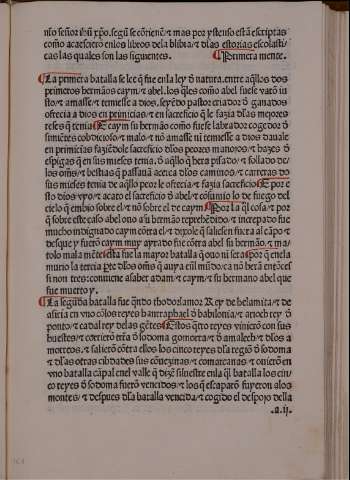 nr̃o señor ihũ xp̃o. segũ se cõtienẽ / ⁊ mas por ystenso estã escriptas
como acaescierõ enlos libros dela blibia / ⁊ dlas estorias escolasti
cas las quales son las siguentes. ¶ Primera mente.
¶ La primera batalla se lee q̃ fue enla ley d̃ natura. entre aq̃llos dos
primeros hermanos caym / ⁊ abel. los q̃les como abel fuese varõ iu
sto / ⁊ amasse / ⁊ temiesse a dios. seyẽdo pastor criador d̃ ganados
ofrecia a dios en primicias / ⁊ en sacreficio q̃ le fazia dlas mejores
reses q̃ tenia ¶ E caym su hermano como fuese labrador cogedor d̃
simiẽtes cobdicioso / ⁊ malo / ⁊ nõ amasse ni temesse a dios dauale
en primicias faziẽdole sacreficio dlos peores manojos / ⁊ hazes d̃
espigas q̃ en sus mieses tenia. d̃ aq̃llo q̃ bera pisado / ⁊ follado de
los om̃s / ⁊ bestias q̃ passauã acerca dlos caminos / ⁊ carreras do
sus mieses tenia de aq̃llo peor le ofrecia / ⁊ fazia sacreficio ¶ E por e
sto dios vyo / ⁊ acato el sacreficio d̃ abel / ⁊ cõsumio lo de fuego del
cielo q̃ embio sobre el / ⁊ nõ sobre el de caym ¶ Por la q̃l cosa / ⁊ por
q̃ sobre este caso abel ouo a su hermano reprehẽdido / ⁊ increpado fue
mucho indignado caym cõtra el / ⁊ dixole q̃ saliesen fuera al cãpo / ⁊
desque y fuerõ caym muy ayrado fue cõtra abel su hermano. ⁊ ma
tolo mala mẽte ¶ esta fue la mayor batalla q̃ ouo ni sera ¶ por q̃ enela
murio la tercia pr̃te dlos om̃s q̃ auya enl mũdo. ca nõ herã entõces
si non tres: conuiene asaber adam / ⁊ caym / ⁊ su hermano abel que
fue muerto y.
¶ La segũda batalla fue q̃ndo thodorlamor Rey de belamita / ⁊ de
asiria en vno cõ los reyes bantraphael d̃ babilonia / ⁊ arioch rey d̃
ponto / ⁊ cadal rey delas gẽtes ¶ Estos q̃tro reyes vinierõ con sus
huestes / ⁊ corrierõ trr̃a d̃ sodoma gomorra / ⁊ d̃ amalech / ⁊ dlos a
morreos. ⁊ salierõ cõtra ellos los cinco reyes dla regiõ d̃ sodoma
⁊ dlas otras cibdades sus cõuezinas / ⁊ comarcanas / ⁊ ouierõ en
vno batalla cãpal enel valle q̃ dizẽ siluestre enla q̃l batalla los cin
co reyes d̃ sodoma fuerõ vencidos / ⁊ los q̃ escaparõ fuyeron alos
montes / ⁊ despues dsla batalla vencida / ⁊ cogido el despojo della
.a.ij.